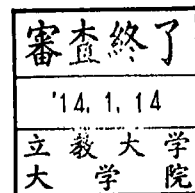 審査終了
'14. 1. 14
立教大学
大学院